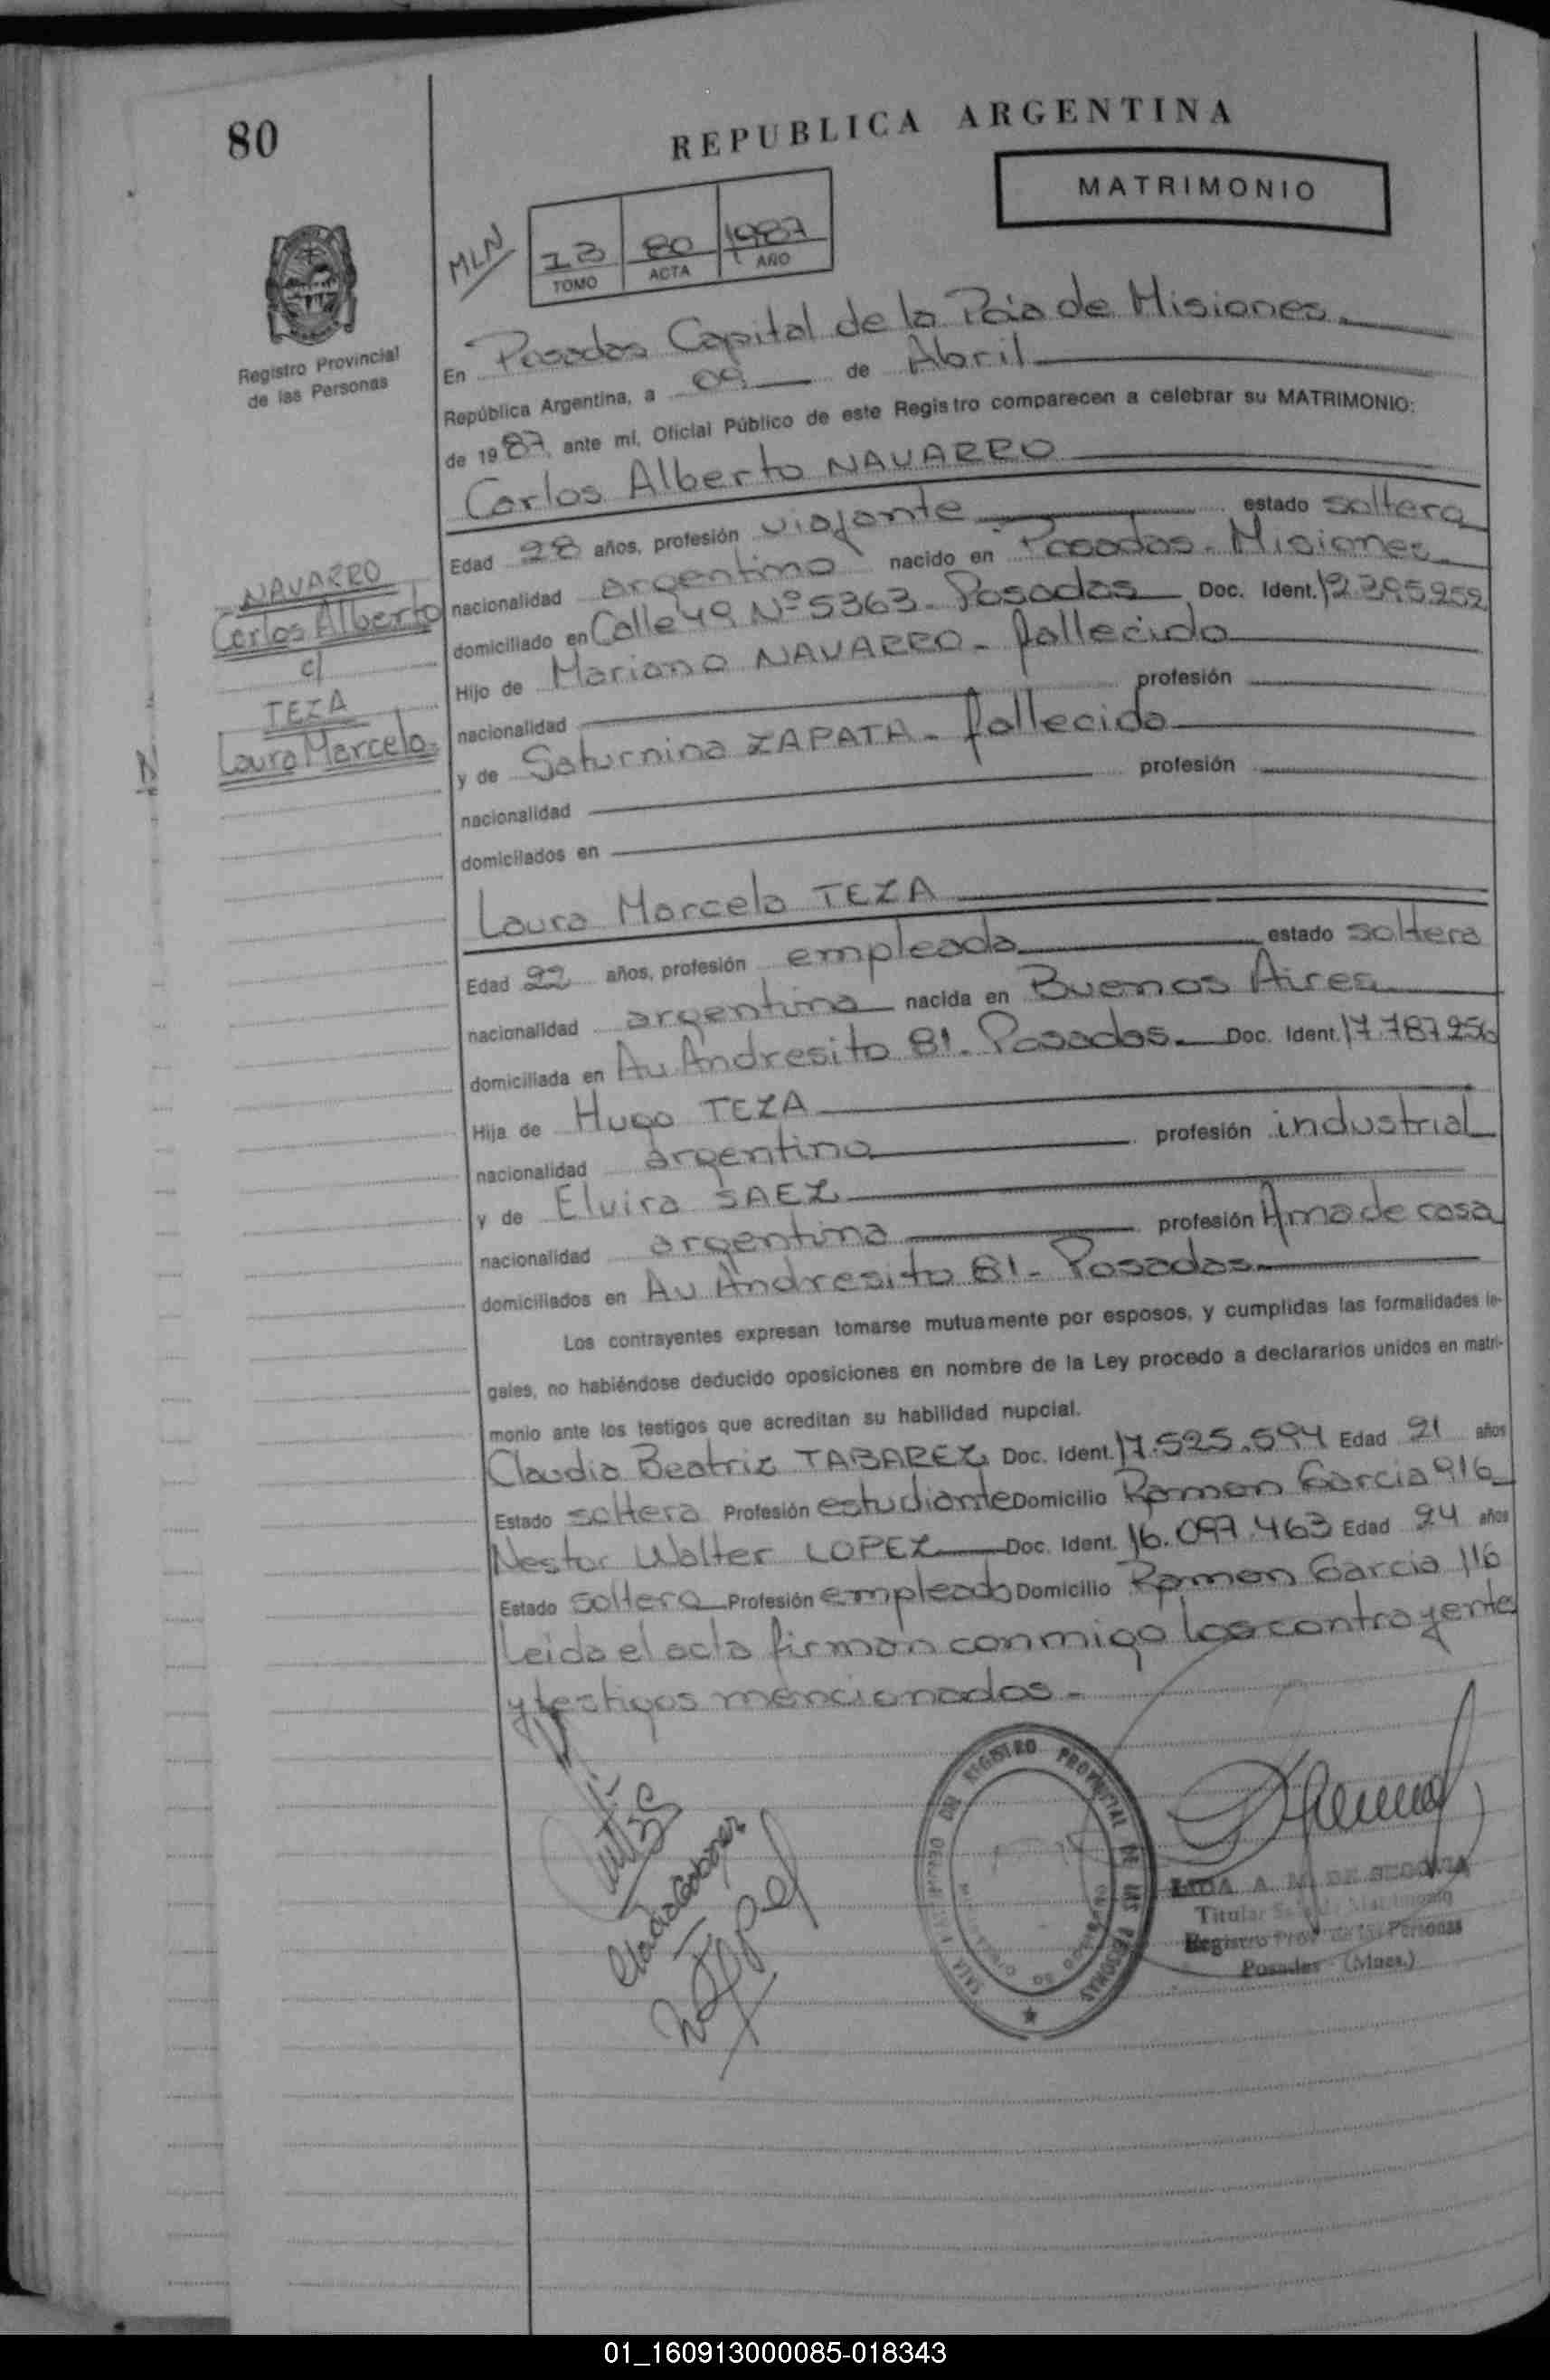 80
REPUBLICA ARGENTINA
MATRIMONIO
MLN
13 80 1987
TOMO ACTA AÑO
Registro Provincial
de las Personas
En Posadas Capital de la Pcia de Misiones.
República Argentina, a 09 de Abril
de 1987, ante mí, Oficial Público de este Registro comparecen a celebrar su MATRIMONIO:
Carlos Alberto NAVARRO
Edad 28 años, profesión viajante estado soltero
nacionalidad argentino nacido en Posadas - Misiones
domiciliado en Calle 49 Nº 5363 - Posadas Doc. Ident. 12.395.252
Hijo de Mariano NAVARRO - fallecido
nacionalidad profesión
y de Saturnina ZAPATA - fallecida
nacionalidad profesión
domiciliados en
NAVARRO
Carlos Alberto
c/
TEZA
Laura Marcela
N
Laura Marcela TEZA
Edad 22 años, profesión empleada estado soltera
nacionalidad argentina nacida en Buenos Aires
domiciliada en Av Andresito 81 - Posadas Doc. Ident. 17.787.256
Hija de Hugo TEZA
nacionalidad argentino profesión industrial
y de Elvira SAEZ
nacionalidad argentina profesión Ama de casa
domiciliados en Av Andresito 81 - Posadas
Los contrayentes expresan tomarse mutuamente por esposos, y cumplidas las formalidades le-
gales, no habiéndose deducido oposiciones en nombre de la Ley procedo a declararlos unidos en matri-
monio ante los testigos que acreditan su habilidad nupcial.
Claudia Beatriz TABAREZ Doc. Ident. 17.525.594 Edad 21 años
Estado soltera Profesión estudiante Domicilio Ramon Garcia 916
Nestor Walter LOPEZ Doc. Ident. 16.097.463 Edad 24 años
Estado soltero Profesión empleado Domicilio Ramon Garcia 116
Leida el acta firman conmigo los contrayente
y testigos mencionados -
REGISTRO PROVINCIAL DE LAS PERSONAS
A. M. DE SEGOVIA
Titular Sala de Matrimonio
Registro Prov. de las Personas
Posadas (Mnes.)
01_160913000085-018343